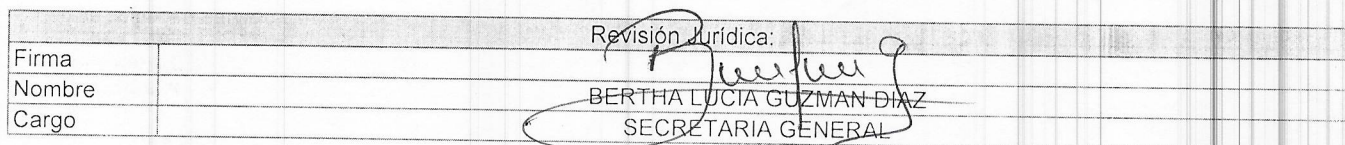 Revisión Jurídica:
Firma
Nombre BERTHA LUCIA GUZMAN DIAZ
Cargo SECRETARIA GENERAL